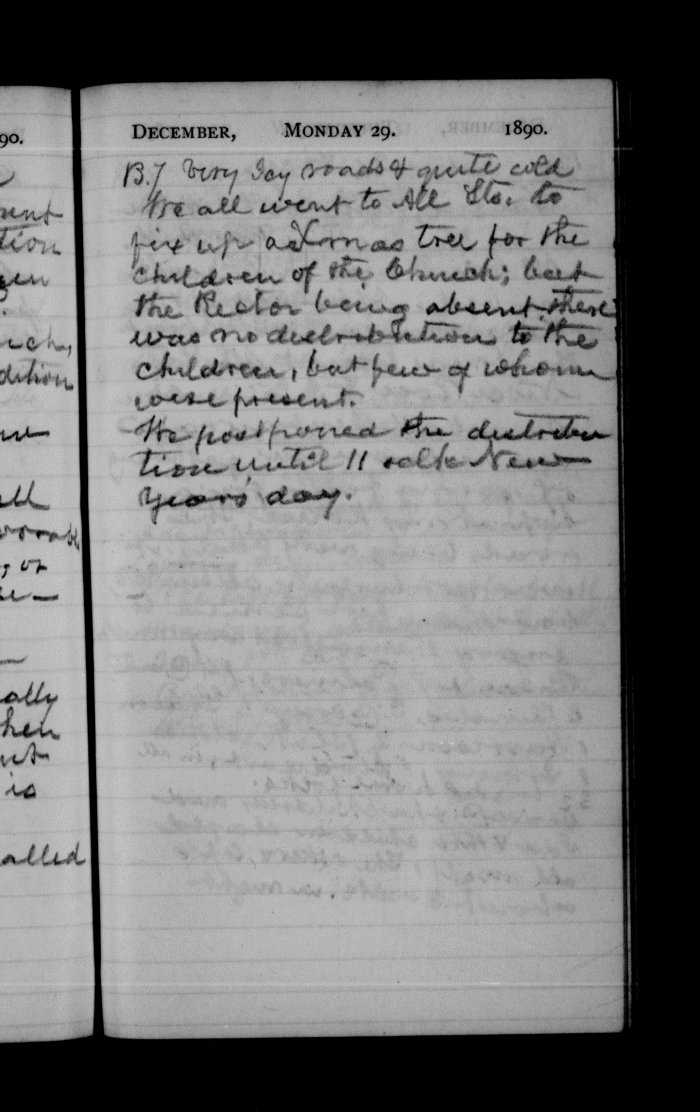 90.
DECEMBER, MONDAY 29. 1890.
B.7 Very Icy roads & quite cold
We all went to All Sts. to
fix up a Xmas tree for the
children of the Church; but
the Rector being absent there
was no distribution to the
children, but few of whom
were present.
We postponed the distribu
tion until 11 oclk New
Years day.
tion
dition
; or
ally
hen
is
alled